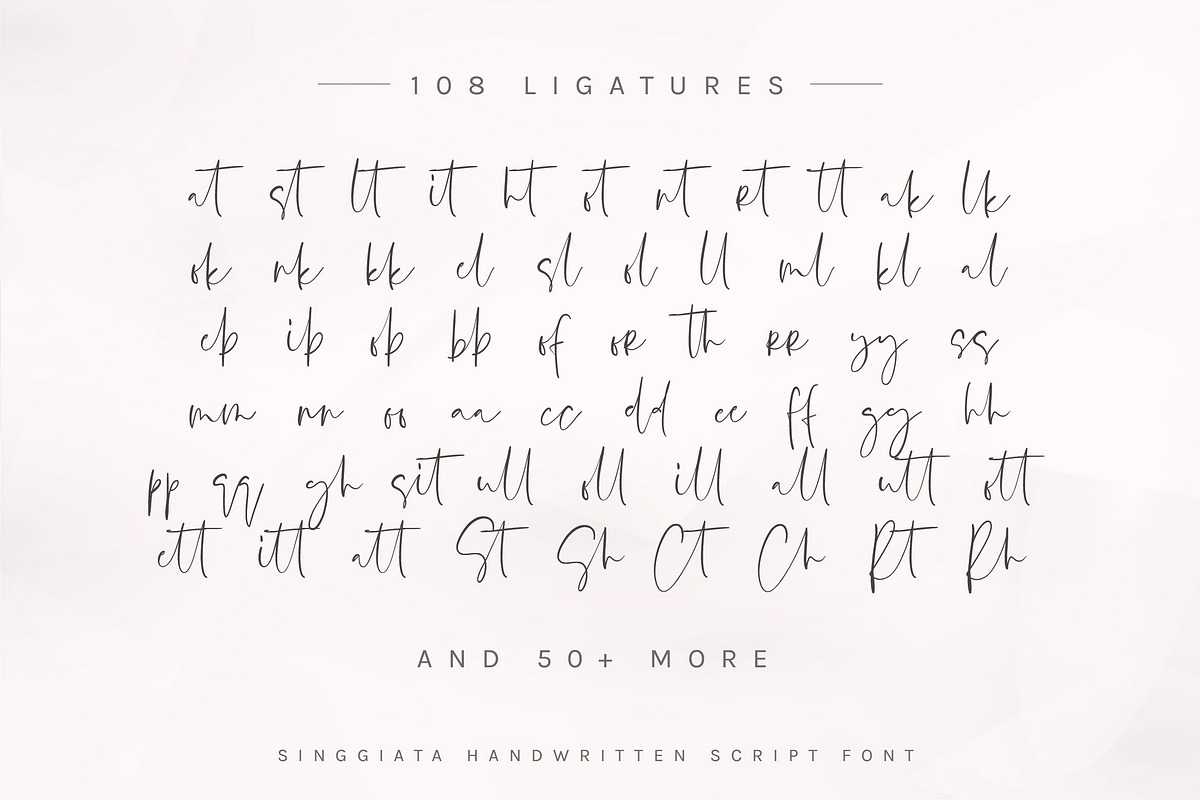 108 LIGATURES
at st lt it ht ot nt rt tt ak lk
ok nk kk cl sl ol ll ml kl al
cb ib ob bb of or th rr yy ss
mm nn oo aa cc dd ee ff gg hh
pp qq gh sit ull oll ill all utt ott
ett itt att St Sh Ct Ch Rt Rh
AND 50+ MORE
SINGGIATA HANDWRITTEN SCRIPT FONT